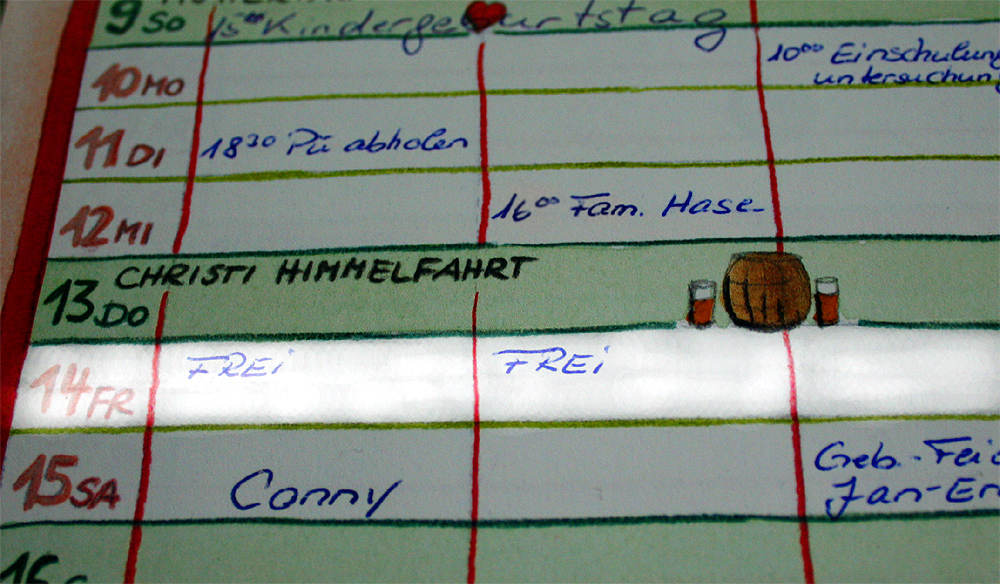 9 SO
15⁰⁰ Kindergeburtstag
10 MO
10⁰⁰ Einschulun
untersuchun
11 DI
18³⁰ Pü abholen
12 MI
16⁰⁰ Fam. Hase
13 DO
CHRISTI HIMMELFAHRT
14 FR
FREI
FREI
15 SA
Conny
Geb.-Fei
Jan-Er
16